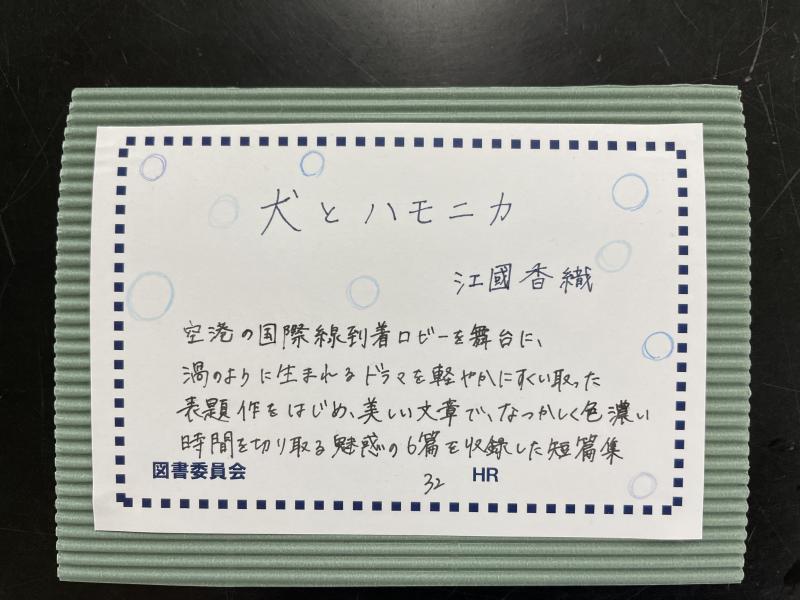 犬とハモニカ
江國香織
空港の国際線到着ロビーを舞台に、
渦のように生まれるドラマを軽やかにすくい取った
表題作をはじめ、美しい文章で、なつかしく色濃い
時間を切り取る魅惑の6篇を収録した短篇集
図書委員会 32 HR